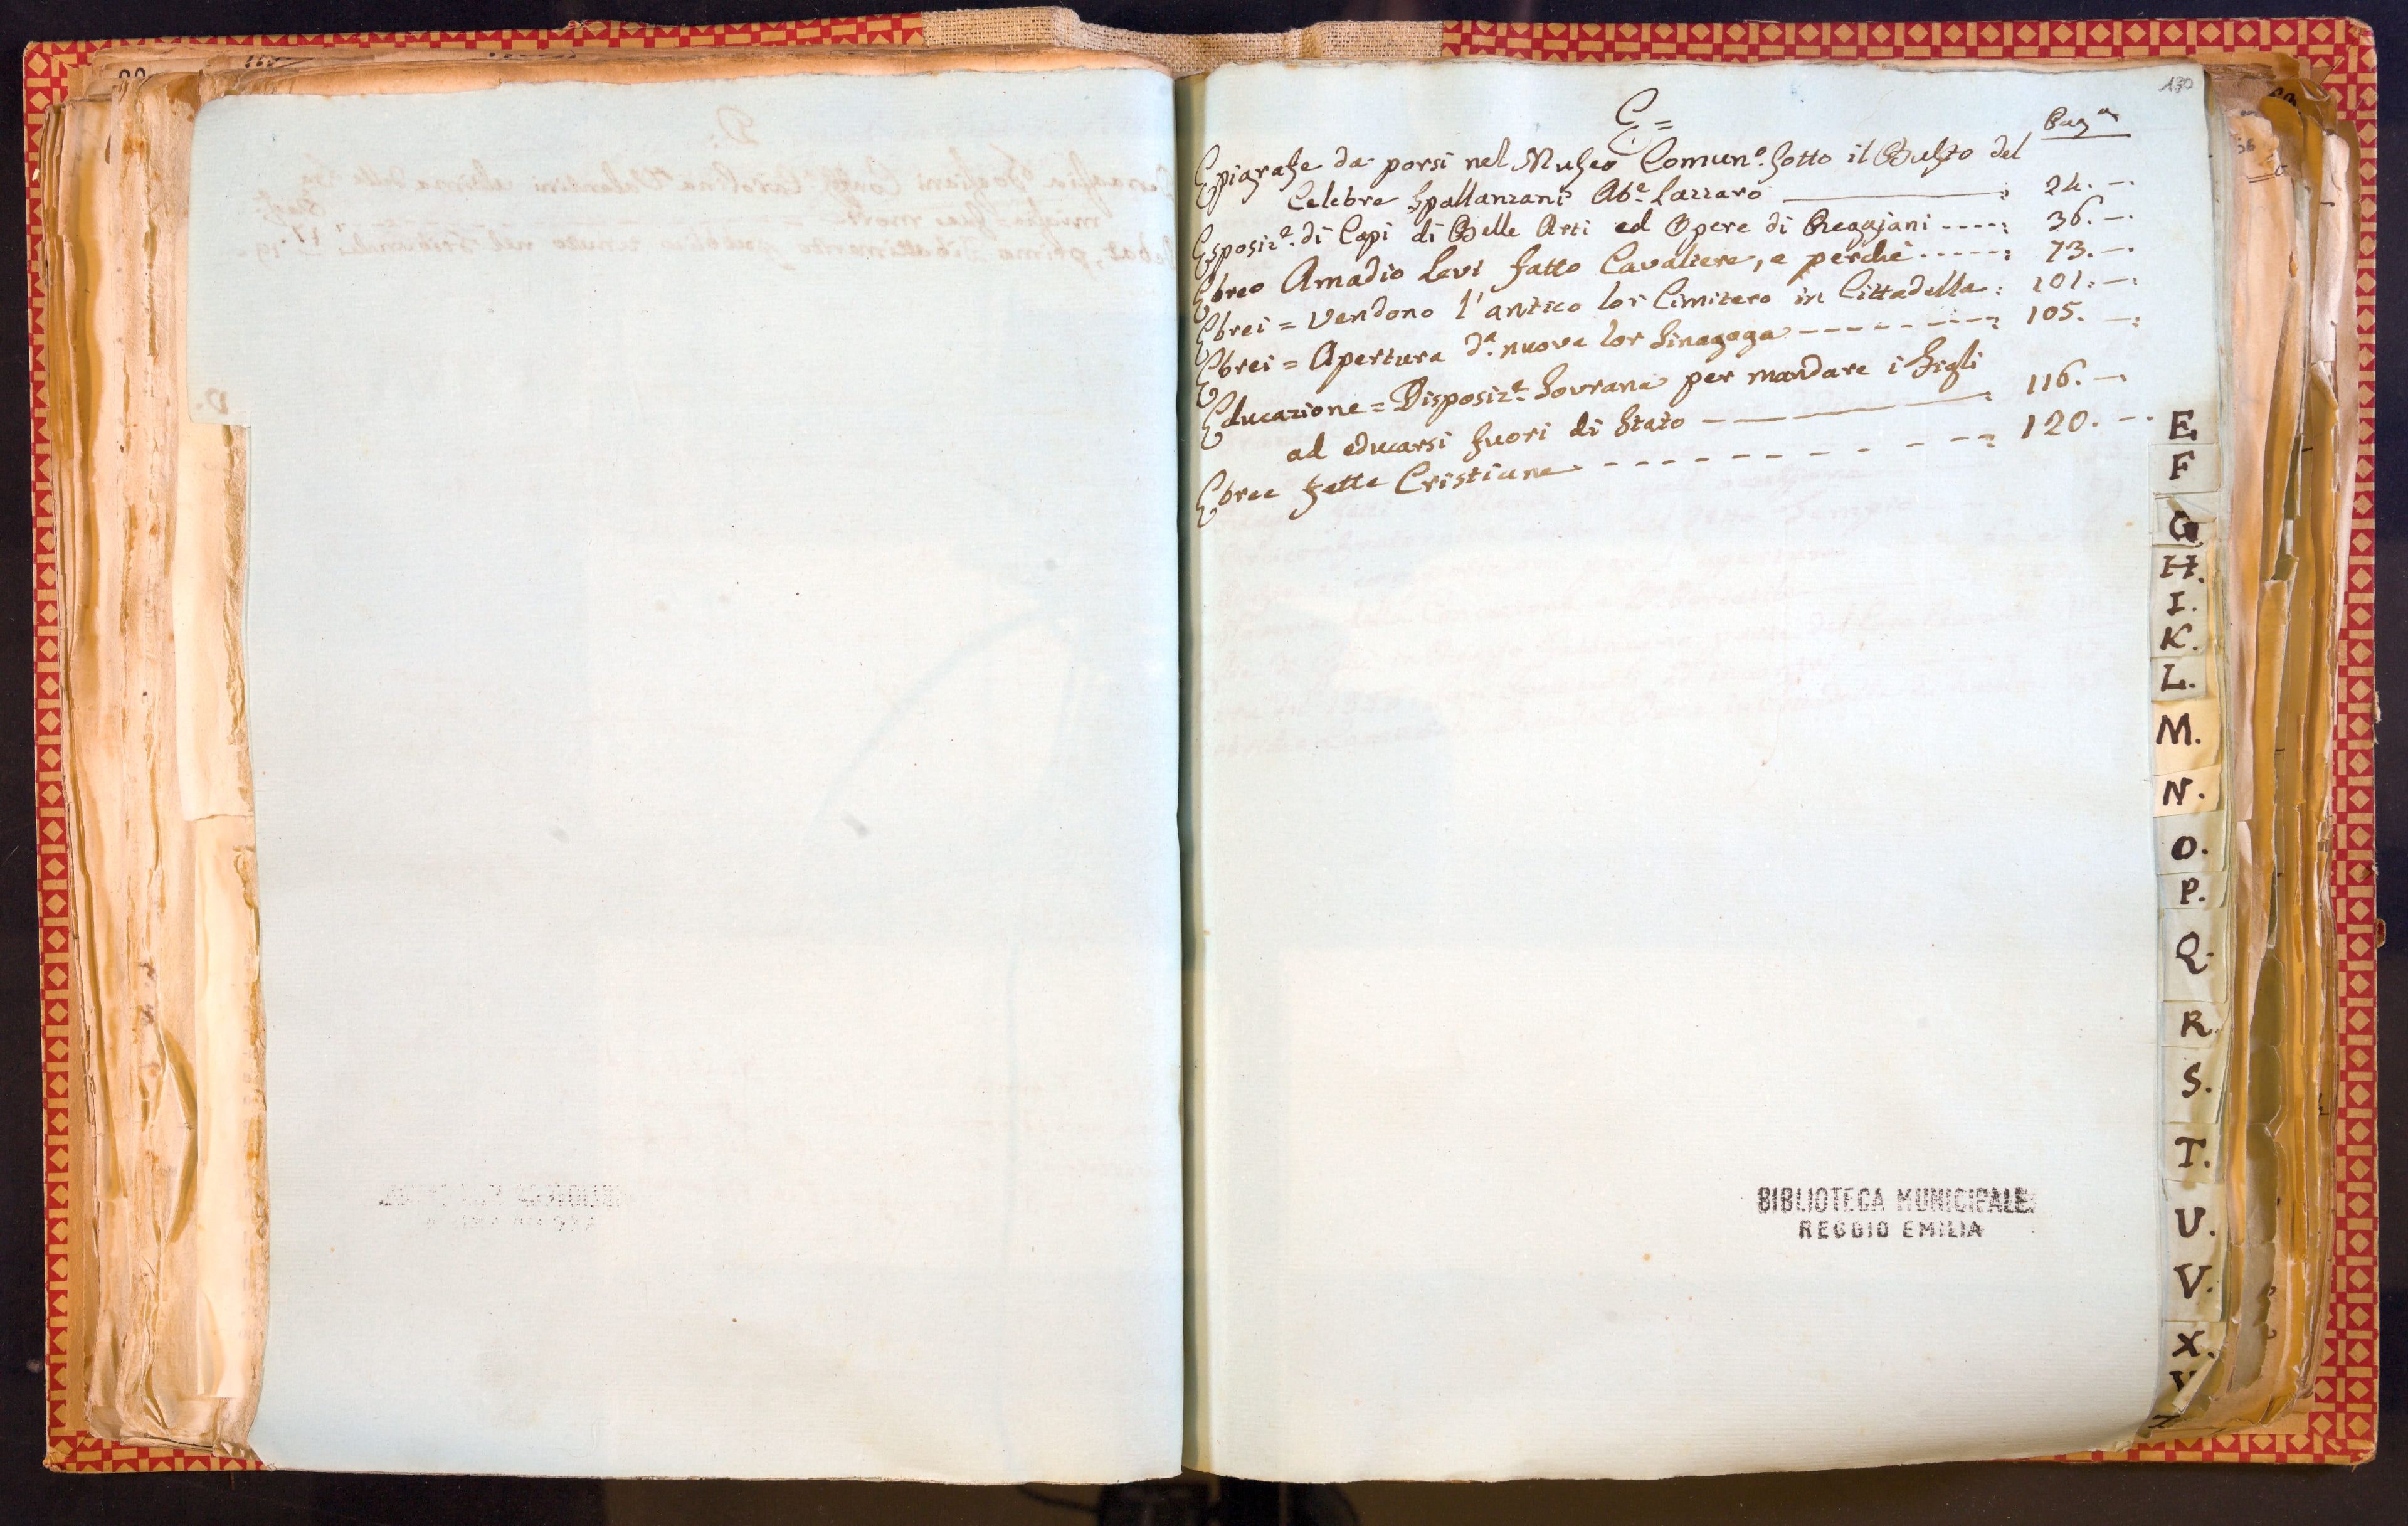 130
E =
Pag.ª
Epigrafe da porsi nel Museo Comun.º sotto il Busto del
Celebre Spallanzani Ab.e Lazzaro ———: 24. —
Esposiz.e di Capi di Belle Arti ed Opere di Regajani ----: 36. —
Ebreo Amadio Levi fatto Cavaliere, e perchè -----: 73. —
Ebrei = Vendono l'antico lor Cimitero in Cittadella: 101. —:
Ebrei = Apertura d.ª nuova lor Sinagoga --------: 105. —:
Educazione = Disposiz.e Sovrana per mandare i figli
ad educarsi fuori di Stato ———: 116. —
Ebree fatte Cristiane ---------: 120. —
E
F
G
H.
I.
K.
L.
M.
N.
O.
P.
Q.
R.
S.
T.
U.
V.
X.
Y
Z
BIBLIOTECA MUNICIPALE
REGGIO EMILIA